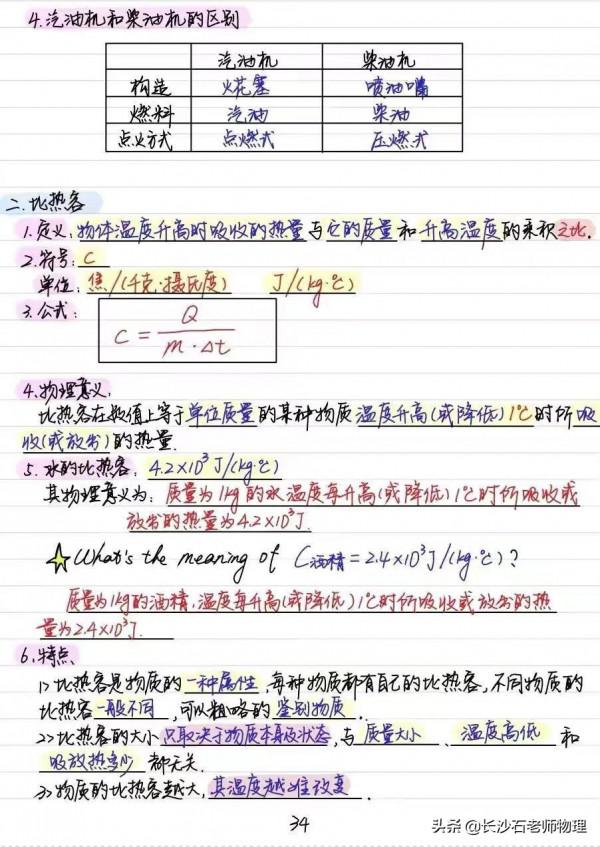 4.汽油机和柴油机的区别
汽油机 柴油机
构造 火花塞 喷油嘴
燃料 汽油 柴油
点火方式 点燃式 压燃式
二.比热容
1.定义:物体温度升高时吸收的热量与它的质量和升高温度的乘积之比.
2.符号:C
单位:焦/(千克·摄氏度) J/(kg·℃)
3.公式:
C = Q / m·Δt
4.物理意义:
比热容在数值上等于单位质量的某种物质温度升高(或降低)1℃时所吸
收(或放出)的热量.
5.水的比热容:4.2×10³J/(kg·℃)
其物理意义为:质量为1kg的水温度每升高(或降低)1℃时所吸收或
放出的热量为4.2×10³J.
What's the meaning of C酒精=2.4×10³J/(kg·℃)?
质量为1kg的酒精,温度每升高(或降低)1℃时所吸收或放出的热
量为2.4×10³J.
6.特点:
1>比热容是物质的一种属性,每种物质都有自己的比热容,不同物质的
比热容一般不同,可以粗略的鉴别物质.
2>比热容的大小只取决于物质本身及状态,与质量大小、温度高低和
吸放热多少都无关.
3>物质的比热容越大,其温度越难改变.
34
头条@长沙石老师物理